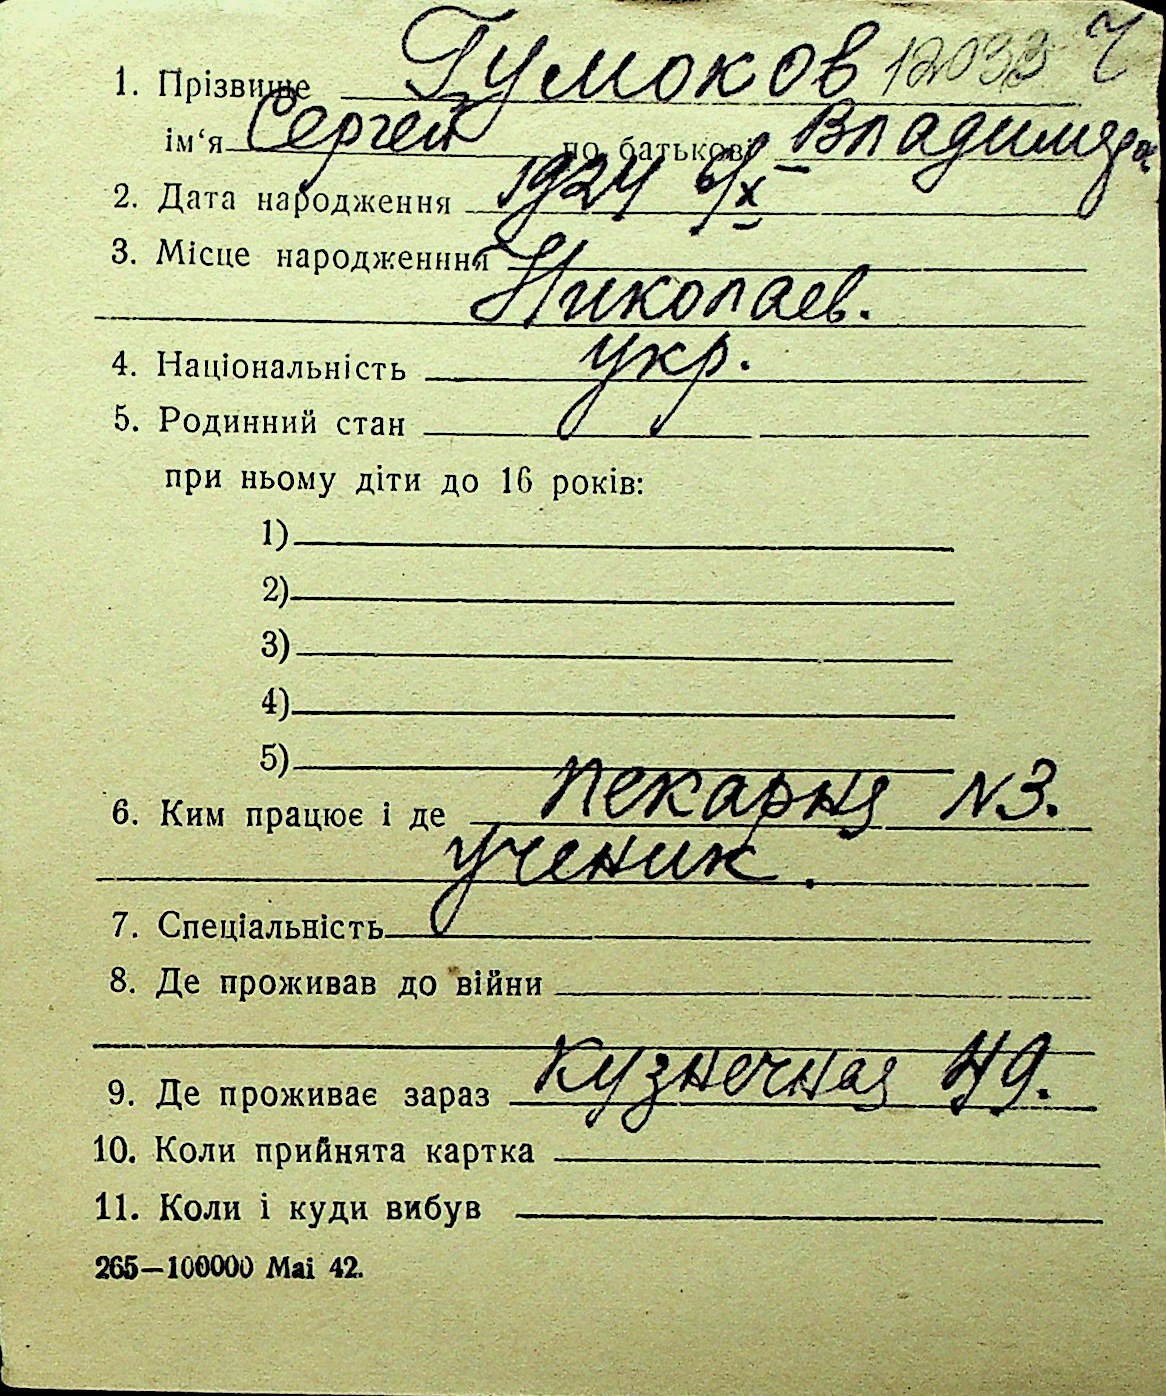 1. Прізвище Гумоков 12093 Г
ім‘я Сергей по батькові Владимира
2. Дата народження 1924 6/X
3. Місце народженння
Николаев.
4. Національність укр.
5. Родинний стан
при ньому діти до 16 років:
1)
2)
3)
4)
5)
6. Ким працює і де пекарня N3.
ученик.
7. Спеціальність
8. Де проживав до війни
9. Де проживає зараз Кузнечная 49.
10. Коли прийнята картка
11. Коли і куди вибув
265—100000 Mai 42.